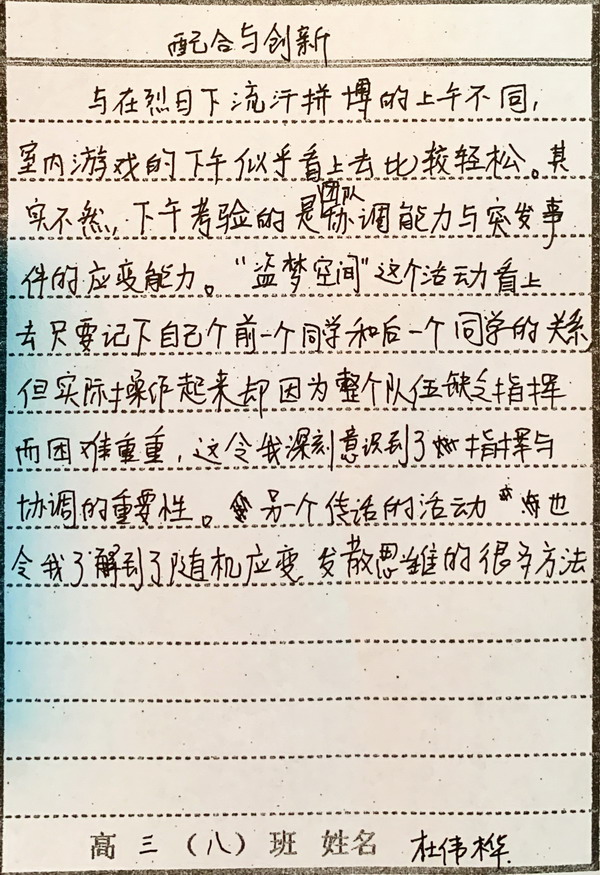 配合与创新
与在烈日下流汗拼博的上午不同,
室内游戏的下午似乎看上去比较轻松。其
实不然,下午考验的是团队协调能力与突发事
件的应变能力。“盗梦空间”这个活动看上
去只要记下自己个前一个同学和后一个同学的关系,
但实际操作起来却因为整个队伍缺乏指挥
而困难重重,这令我深刻意识到了指挥与
协调的重要性。另一个传话的活动也
令我了解到了随机应变 发散思维的很多方法
高三(八)班 姓名 杜伟桦